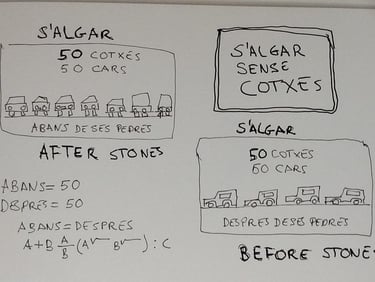 S'ALGAR
50 COTXES
50 CARS
ABANS DE SES PEDRES
AFTER STONES
S'ALGAR
SENSE
COTXES
S'ALGAR
50 COTXES
50 CARS
DESPRES DE SES PEDRES
BEFORE STONES
ABANS = 50
DESPRES = 50
ABANS = DESPRES